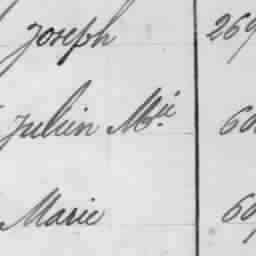 Joseph 269
Julien Mie 60
Marie 60